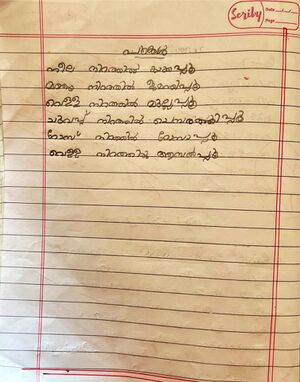 Scriby
Date
Page
നീല നിറത്തിൽ
മഞ്ഞ നിറത്തിൽ
വെള്ള നിറത്തിൽ മുല്ലപ്പൂർ
ചുവപ്പ് നിറത്തിൽ ചെമ്പരത്തിപ്പൂർ
റോസ് നിറത്തിൽ റോസാപ്പൂർ
വെള്ള നിറത്തിൽ ആമ്പൽപ്പൂർ